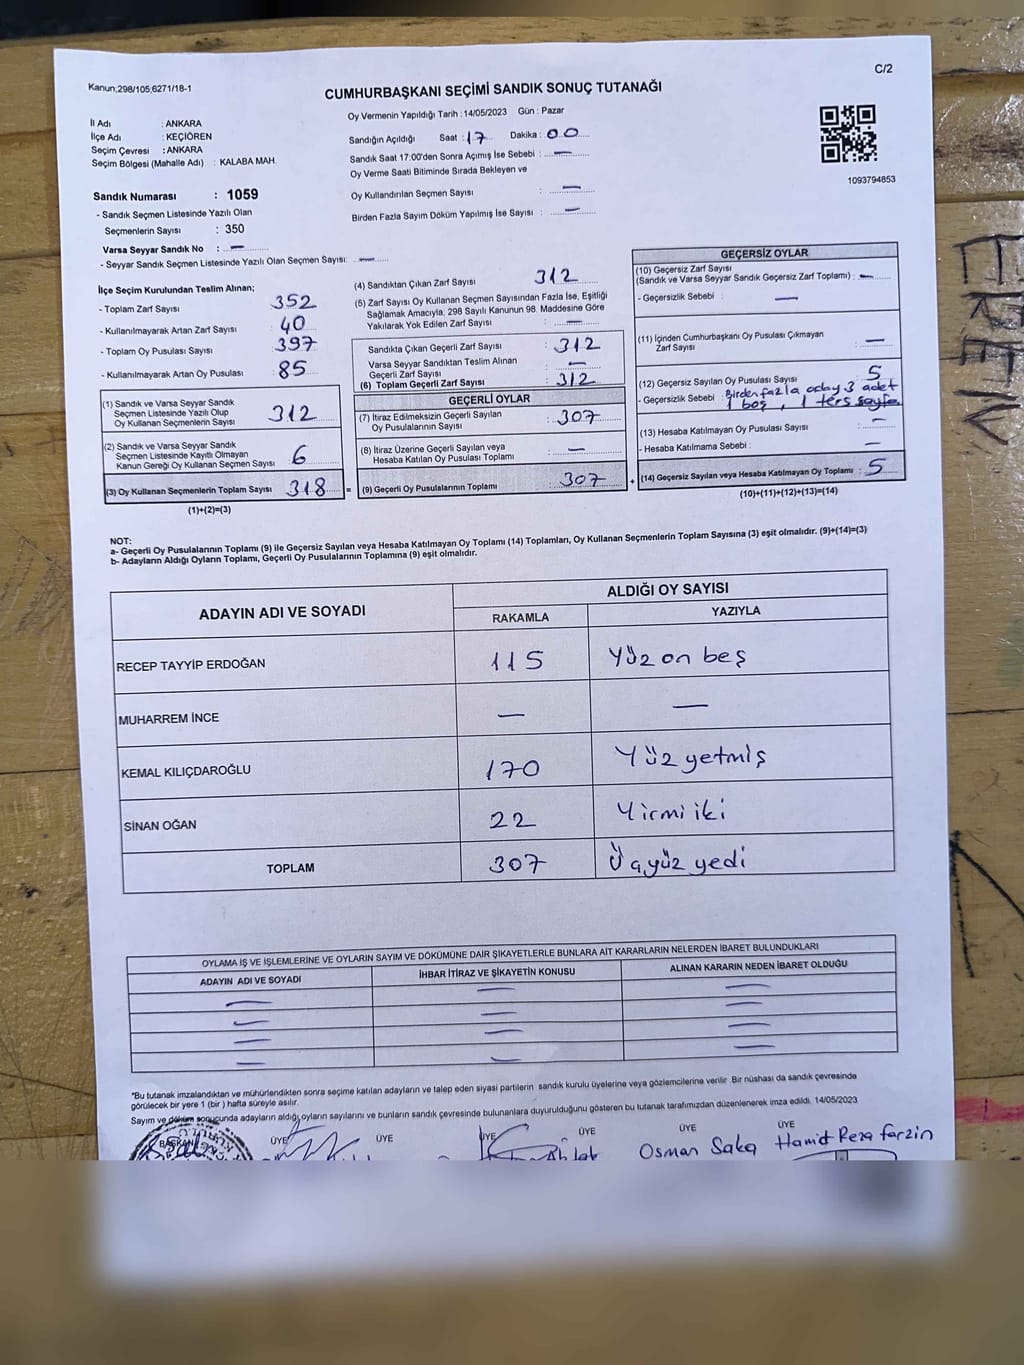 C/2
Kanun;298/105;6271/18-1
CUMHURBAŞKANI SEÇİMİ SANDIK SONUÇ TUTANAĞI
İl Adı : ANKARA
İlçe Adı : KEÇİÖREN
Seçim Çevresi : ANKARA
Seçim Bölgesi (Mahalle Adı) : KALABA MAH.
Oy Vermenin Yapıldığı Tarih : 14/05/2023 Gün : Pazar
Sandığın Açıldığı Saat : 17 Dakika : 00
Sandık Saat 17.00'den Sonra Açımış İse Sebebi : —
Oy Verme Saati Bitiminde Sırada Bekleyen ve
Oy Kullandırılan Seçmen Sayısı : —
Birden Fazla Sayım Döküm Yapılmış İse Sayısı : —
1093794853
Sandık Numarası : 1059
- Sandık Seçmen Listesinde Yazılı Olan
Seçmenlerin Sayısı : 350
Varsa Seyyar Sandık No : —
- Seyyar Sandık Seçmen Listesinde Yazılı Olan Seçmen Sayısı: —
İlçe Seçim Kurulundan Teslim Alınan;
- Toplam Zarf Sayısı 352
- Kullanılmayarak Artan Zarf Sayısı 40
- Toplam Oy Pusulası Sayısı 397
- Kullanılmayarak Artan Oy Pusulası 85
(1) Sandık ve Varsa Seyyar Sandık
Seçmen Listesinde Yazılı Olup
Oy Kullanan Seçmenlerin Sayısı 312
(2) Sandık ve Varsa Seyyar Sandık
Seçmen Listesinde Kayıtlı Olmayan
Kanun Gereği Oy Kullanan Seçmen Sayısı 6
(3) Oy Kullanan Seçmenlerin Toplam Sayısı 318 =
(1)+(2)=(3)
(4) Sandıktan Çıkan Zarf Sayısı 312
(5) Zarf Sayısı Oy Kullanan Seçmen Sayısından Fazla İse, Eşitliği
Sağlamak Amacıyla, 298 Sayılı Kanunun 98. Maddesine Göre
Yakılarak Yok Edilen Zarf Sayısı : —
Sandıkta Çıkan Geçerli Zarf Sayısı : 312
Varsa Seyyar Sandıktan Teslim Alınan
Geçerli Zarf Sayısı : —
(6) Toplam Geçerli Zarf Sayısı : 312
GEÇERLİ OYLAR
(7) İtiraz Edilmeksizin Geçerli Sayılan
Oy Pusulalarının Sayısı : 307
(8) İtiraz Üzerine Geçerli Sayılan veya
Hesaba Katılan Oy Pusulası Toplamı : —
(9) Geçerli Oy Pusulalarının Toplamı : 307 +
GEÇERSİZ OYLAR
(10) Geçersiz Zarf Sayısı
(Sandık ve Varsa Seyyar Sandık Geçersiz Zarf Toplamı) : —
- Geçersizlik Sebebi : —
(11) İçinden Cumhurbaşkanı Oy Pusulası Çıkmayan
Zarf Sayısı : —
(12) Geçersiz Sayılan Oy Pusulası Sayısı : 5
- Geçersizlik Sebebi : Birden fazla aday 3 adet
1 boş, 1 ters sayfa
(13) Hesaba Katılmayan Oy Pusulası Sayısı : —
- Hesaba Katılmama Sebebi : —
(14) Geçersiz Sayılan veya Hesaba Katılmayan Oy Toplamı : 5
(10)+(11)+(12)+(13)=(14)
NOT:
a- Geçerli Oy Pusulalarının Toplamı (9) ile Geçersiz Sayılan veya Hesaba Katılmayan Oy Toplamı (14) Toplamları, Oy Kullanan Seçmenlerin Toplam Sayısına (3) eşit olmalıdır. (9)+(14)=(3)
b- Adayların Aldığı Oyların Toplamı, Geçerli Oy Pusulalarının Toplamına (9) eşit olmalıdır.
ADAYIN ADI VE SOYADI
ALDIĞI OY SAYISI
RAKAMLA YAZIYLA
RECEP TAYYİP ERDOĞAN 115 Yüz on beş
MUHARREM İNCE — —
KEMAL KILIÇDAROĞLU 170 Yüz yetmiş
SİNAN OĞAN 22 Yirmi iki
TOPLAM 307 Üçyüz yedi
OYLAMA İŞ VE İŞLEMLERİNE VE OYLARIN SAYIM VE DÖKÜMÜNE DAİR ŞİKAYETLERLE BUNLARA AİT KARARLARIN NELERDEN İBARET BULUNDUKLARI
ADAYIN ADI VE SOYADI İHBAR İTİRAZ VE ŞİKAYETİN KONUSU ALINAN KARARIN NEDEN İBARET OLDUĞU
— — —
— — —
— — —
— — —
*Bu tutanak imzalandıktan ve mühürlendikten sonra seçime katılan adayların ve talep eden siyasi partilerin sandık kurulu üyelerine veya gözlemcilerine verilir .Bir nüshası da sandık çevresinde
görülecek bir yere 1 (bir ) hafta süreyle asılır.
Sayım ve döküm sonucunda adayların aldığı oyların sayılarını ve bunların sandık çevresinde bulunanlara duyurulduğunu gösteren bu tutanak tarafımızdan düzenlenerek imza edildi. 14/05/2023
BAŞKAN ÜYE ÜYE ÜYE ÜYE ÜYE ÜYE
Osman Saka Hamid Reza farzin
EREN